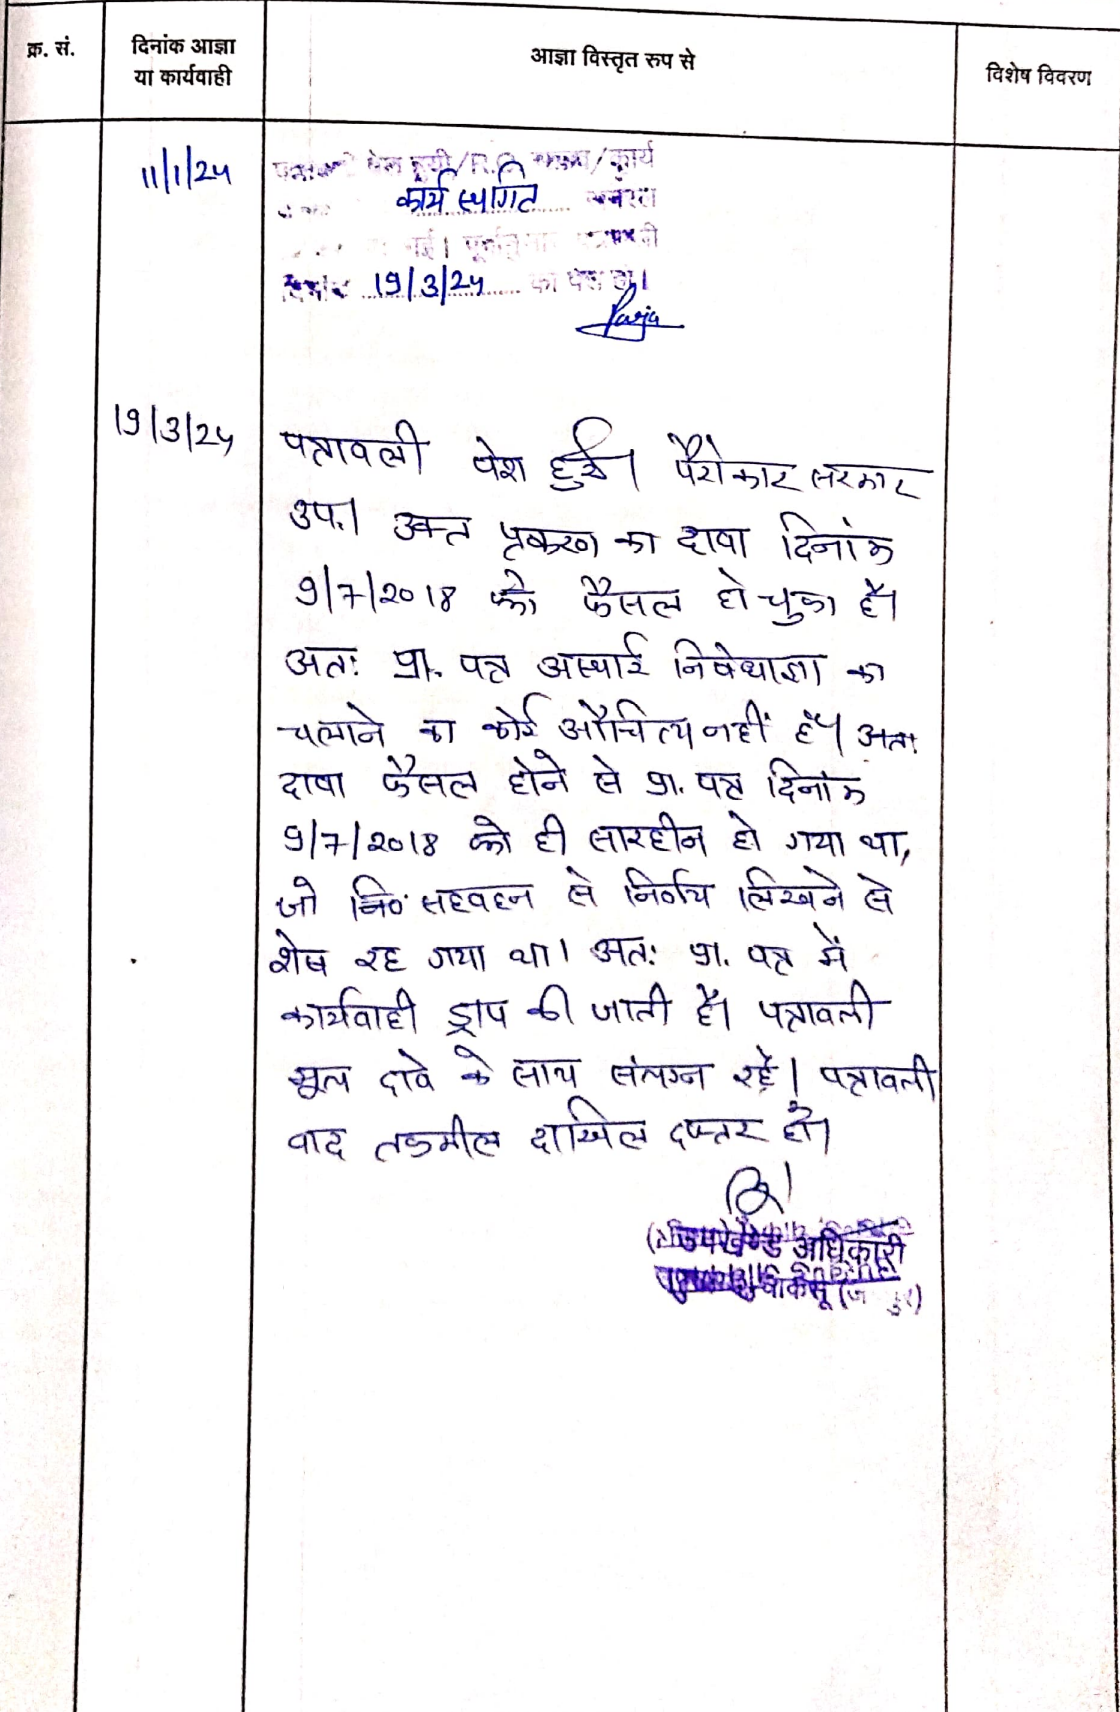 क्र. सं. दिनांक आज्ञा या कार्यवाही आज्ञा विस्तृत रुप से विशेष विवरण
11/1/24 पेश हुयी/P.O. /कार्य
कार्य स्थगित
गई।
19/3/24 को पेश हो।
19/3/24 पत्रावली पेश हुई। पैरोकार सरकार
उप.। उक्त प्रकरण का दावा दिनांक
9/7/2018 को फैसल हो चुका है।
अतः प्रा. पत्र अस्थाई निषेधाज्ञा का
चलाने का कोई औचित्य नहीं है। अतः
दावा फैसल होने से प्रा. पत्र दिनांक
9/7/2018 को ही सारहीन हो गया था,
जो सहवहन से निर्णय लिखने से
शेष रह गया था। अतः प्रा. पत्र में
कार्यवाही ड्राप की जाती है। पत्रावली
मूल दावे के साथ संलग्न रहें। पत्रावली
वाद तकमील दाखिल दफ्तर हो।
उपखण्ड अधिकारी
चाकसू